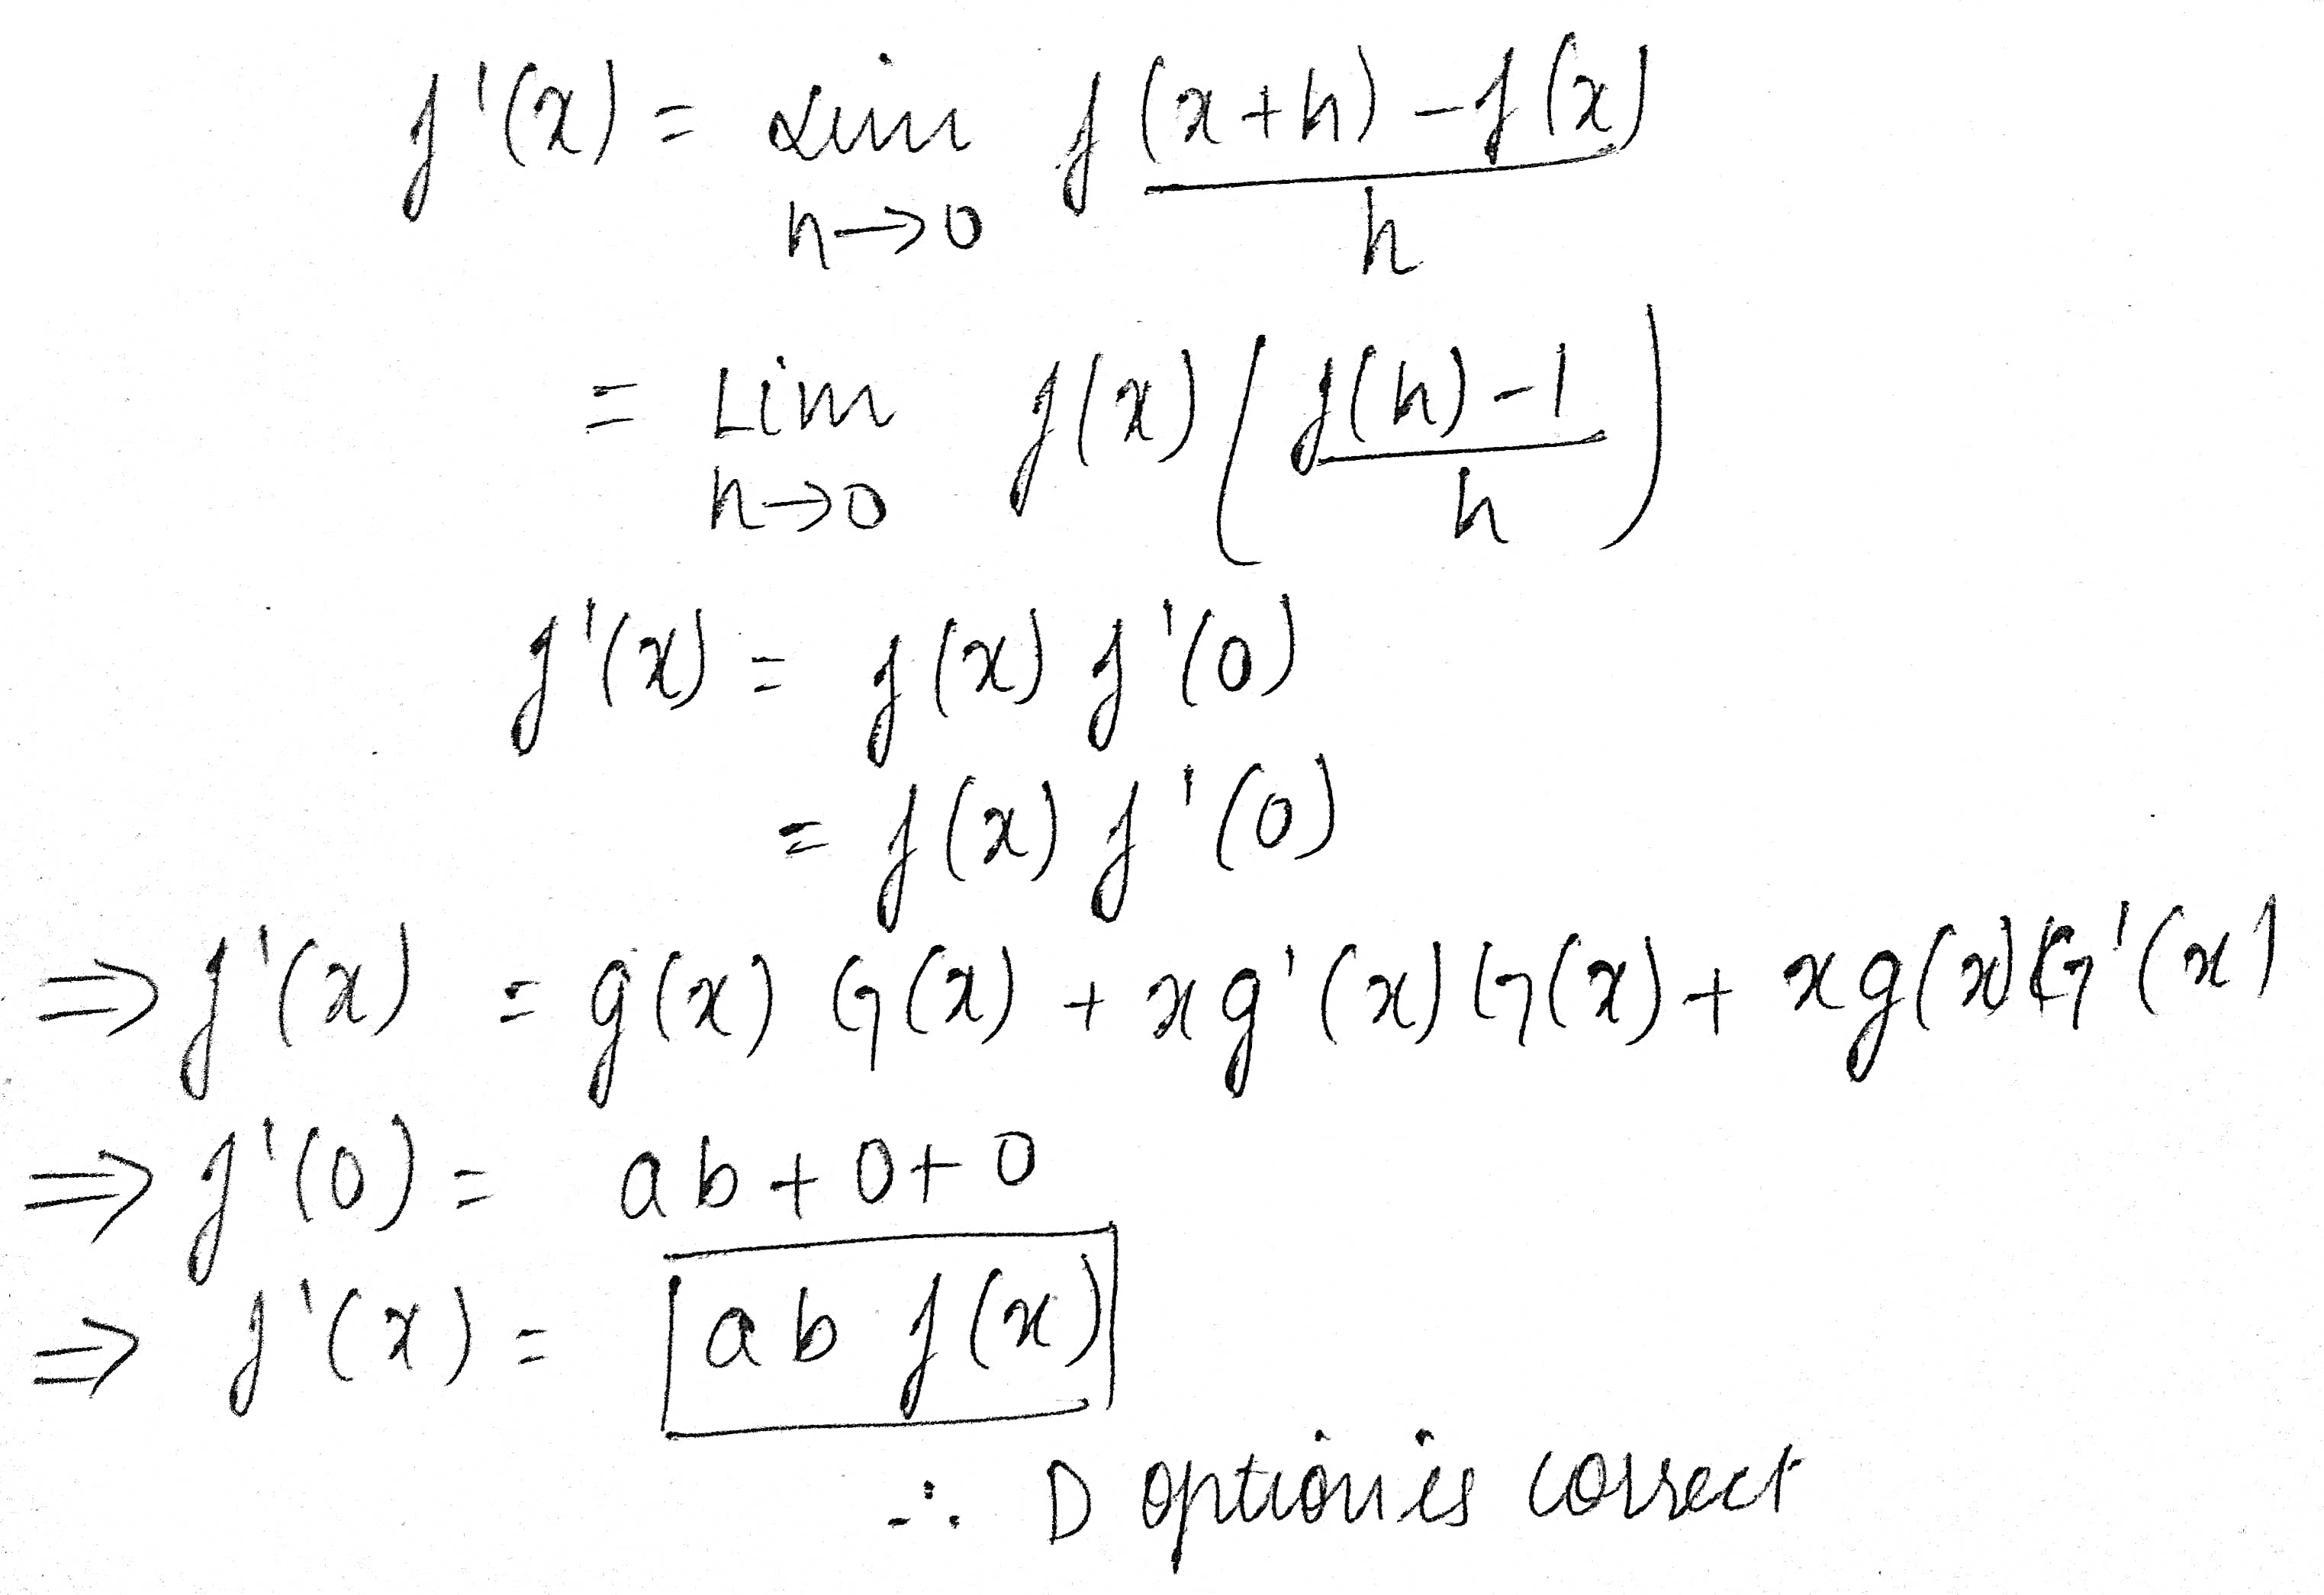 f'(x) = Lim f(x+h) - f(x)
h→0 h
= Lim f(x) ( f(h) - 1 )
h→0 h
f'(x) = f(x) f'(0)
= f(x) f'(0)
⇒ f'(x) = g(x) G(x) + x g'(x) G(x) + x g(x) G'(x)
⇒ f'(0) = ab + 0 + 0
⇒ f'(x) = ab f(x)
∴ D option is correct